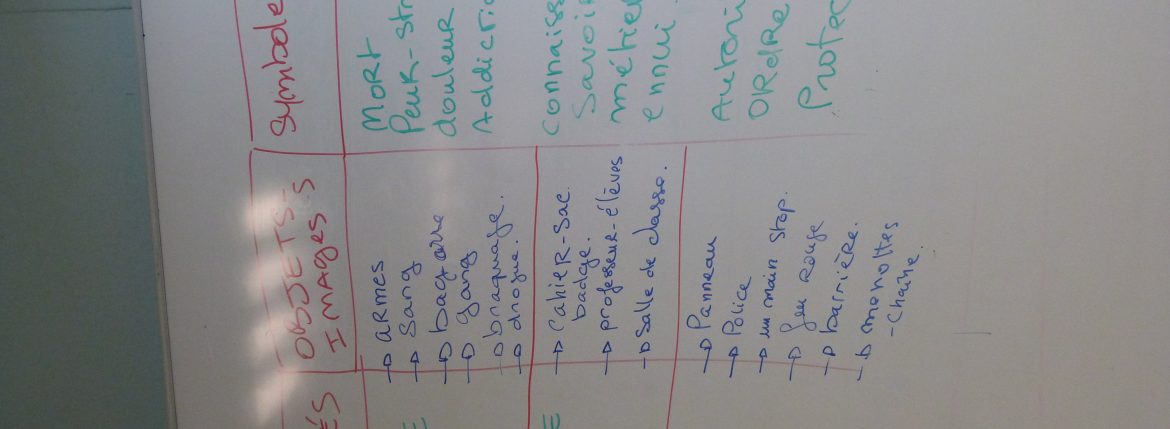 ÉS
OBJETS-S
IMAGES
Symbole
E
→ armes
→ Sang
→ bagarre
→ gang
→ braquage.
→ drogue.
MORT
Peur-str
douleur
Addictio
E
→ cahier-sac
badge.
→ professeur-élèves
→ Salle de classe.
connaiss
Savoir
métier
ennui
→ Panneau
→ Police
→ un main stop.
→ feu rouge
→ barrière.
→ menottes
-chaîne.
Autori
ORDRE
Protec